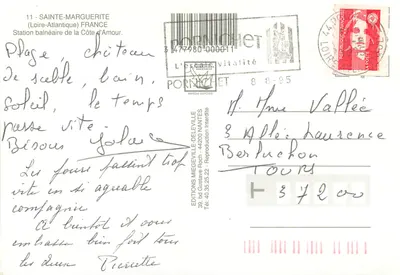 11 - SAINTE-MARGUERITE
(Loire-Atlantique) FRANCE
Station balnéaire de la Côte d'Amour.
Plage, château
de sable, bain,
soleil, le temps
passe vite.
Bisous
Les jours passent trop
vite en si agréable
compagnie
A bientôt il vous
embrasse bien fort tous
les deux Pierrette
EDITIONS MEDIEVILLE-DELEVILLE
39, bd Gustave Roch - 44200 NANTES
Tél. 40.35.25.22 - Reproduction interdite
3 477980 000011
PORNICHET
PORNICHET
8-95
M. Mme Vallée
3 Allée Laurence
Berluchon
TOURS
T 37200